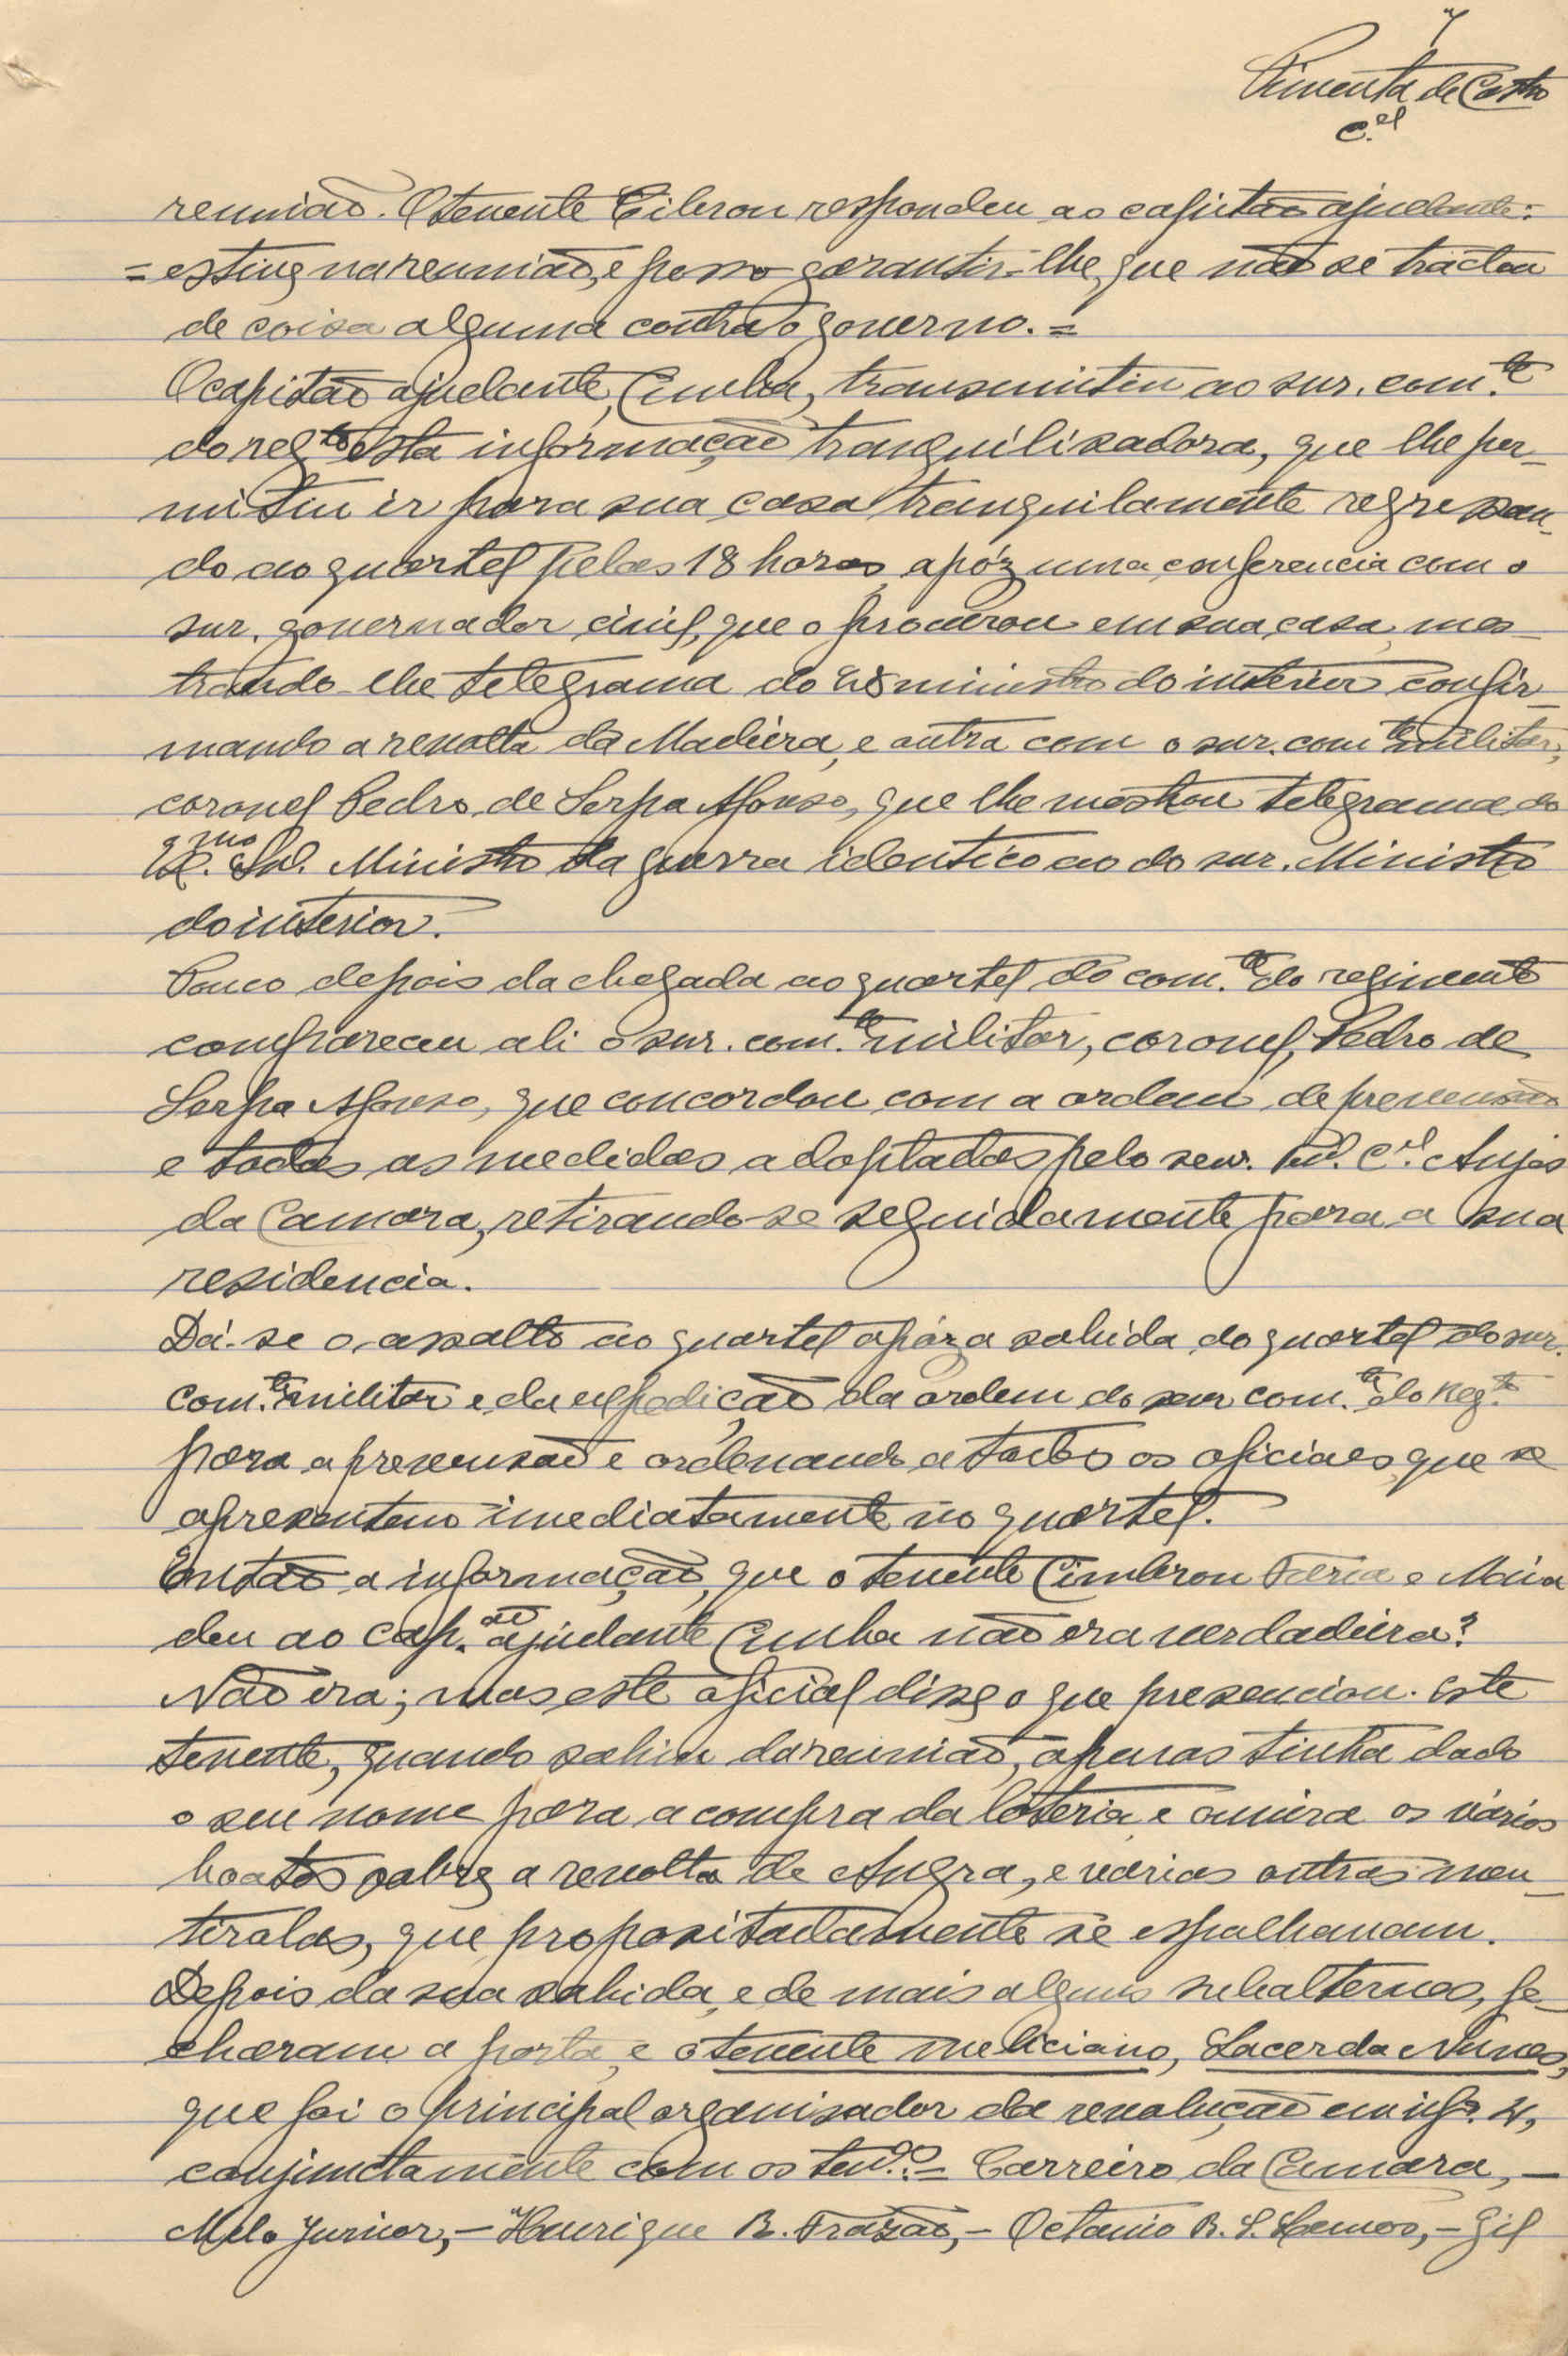 Pimenta de Castro
C.el
reunião. O tenente Cibrou respondeu ao capitão ajudante:
= estive na reunião, e posso garantir-lhe, que não se tractou
de coisa alguma contra o governo. =
O capitão ajudante, Cunha, transmitiu ao snr. com.te
do reg.to esta informação tranquilisadora, que lhe per-
mitiu ir para sua casa tranquilamente regressan-
do ao quartel pelas 18 horas, apóz uma conferencia com o
snr. governador civil, que o procurou em sua casa, mos-
trando-lhe telegrama do ministro do interior confir-
mando a revolta da Madeira, e outra com o snr. com.te militar,
coronel Pedro de Serpa Afonso, que lhe mostrou telegrama do
Ex.mo Snr. Ministro da guerra identico ao do snr. Ministro
do interior.
Pouco depois da chegada ao quartel do com.te do regimento
compareceu ali o snr. com.te militar, coronel, Pedro de
Serpa Afonso, que concordou com a ordem de prevensão
e todas as medidas adoptadas pelo senr. C.el Anjos
da Camara, retirando-se seguidamente para a sua
residencia.
Dá-se o assalto ao quartel apóz a sahida do quartel do snr.
com.te militar e da expedição da ordem do snr com.te do Reg.to
para a prevensão e ordenando a todos os oficiaes que se
apresentem imediatamente no quartel.
Então a informação, que o tenente Cimbron Faria e Maia
deu ao cap.ão ajudante Cunha não era verdadeira?
Não era; mas este oficial disse o que presenciou. Este
tenente, quando sahiu da reunião, apenas tinha dado
o seu nome para a compra da loteria e ouvira os vários
boatos sobre a revolta de Angra, e várias outras men-
tirolas, que propositadamente se espalhavam.
Depois da sua sahida, e de mais alguns subalternos, fe-
charam a porta, e o tenente meliciano, Lacerda Nunes,
que foi o principal organisador da revolução em inf.a 4,
conjunctamente com os ten.es = Carreiro da Camara, -
Melo Junior, - Henrique R. Frazão, - Octavio R. S. Lemos, - Gil